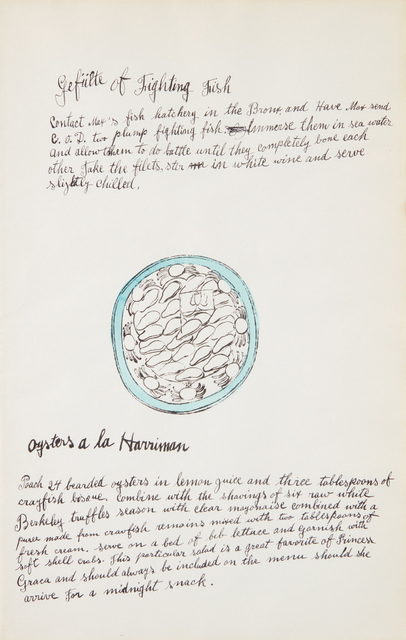 Gefülte of Fighting Fish
Contact Max's fish hatchery in the Bronx and Have Max send
C.O.D. two plump fighting fish. Immerse them in sea water
and allow them to do battle until they completely bone each
other Take the filets. stir in white wine and serve
slightly chilled.
Oysters a la Harriman
Poach 24 bearded oysters in lemon juice and three tablespoons of
crayfish bisque. Combine with the shavings of six raw white
Berkeley truffles season with clear mayonaise combined with a
puree made from crawfish remains mixed with two tablespoons of
fresh cream. serve on a bed of beb lettace and garnish with
soft shell crabs. This particular salad is a great favorite of Princess
Graca and should always be included on the menu should she
arrive for a midnight snack.